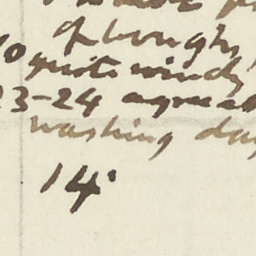 of boughs,
quite windy
23-24 agreeab
washing day
14°